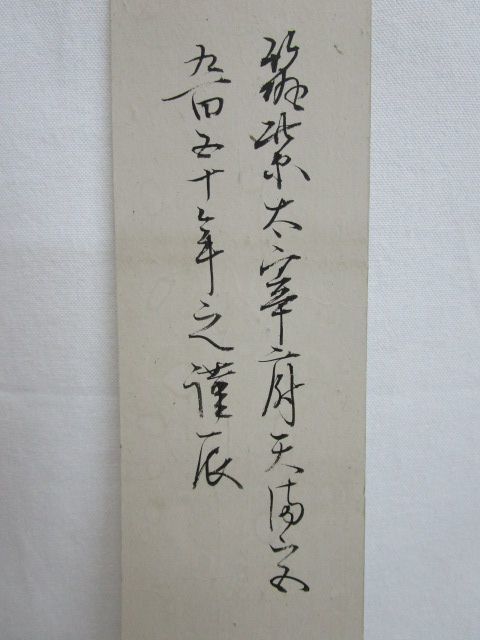 筑紫太宰府天満宮
九百五十年之謹辰